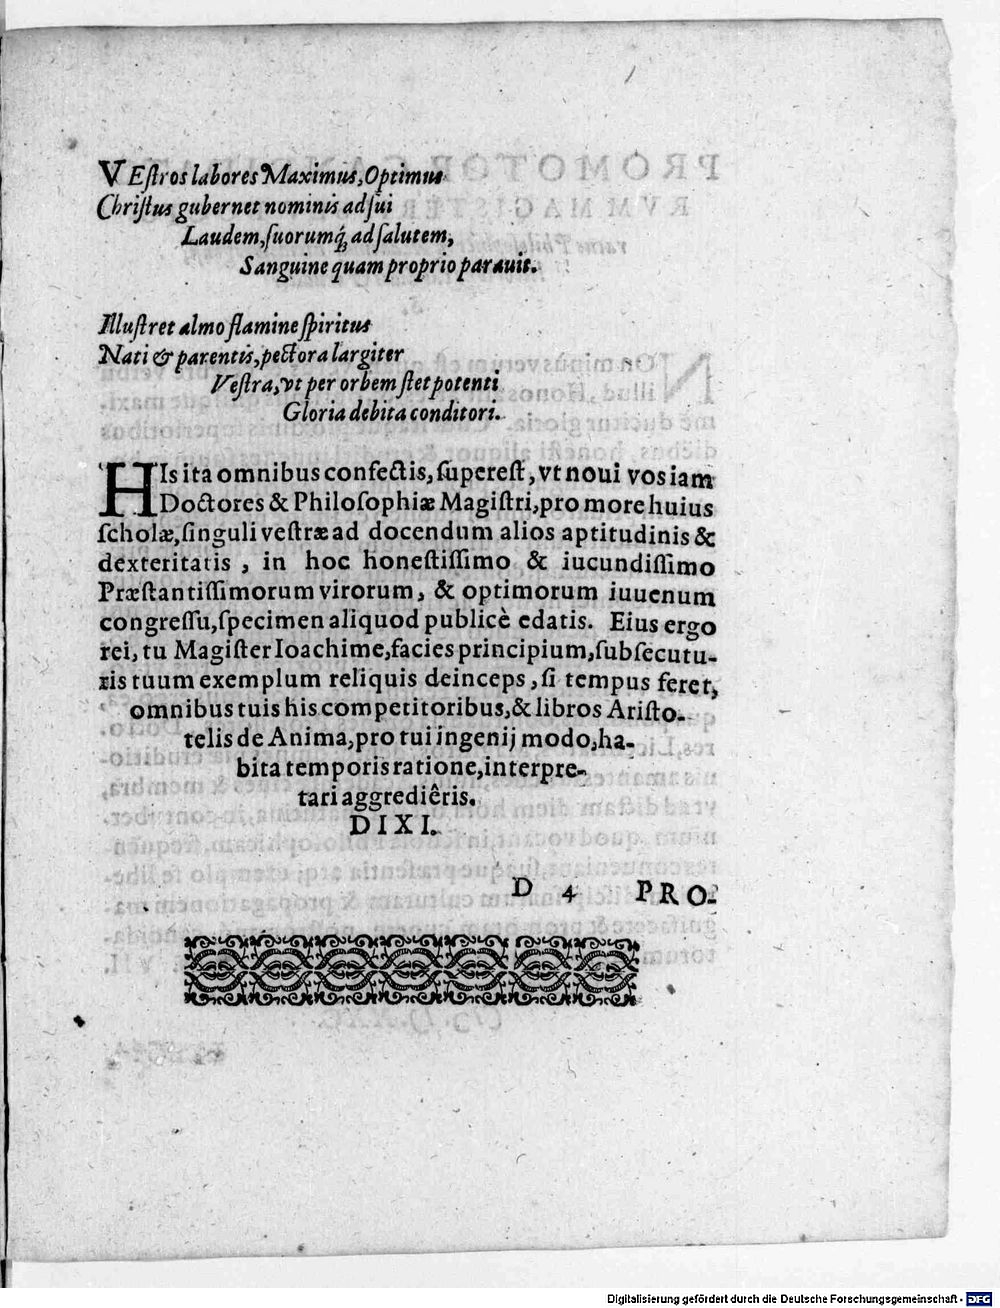 VEſtros labores Maximus, Optimus
Chriſtus gubernet nominis ad ſui
Laudem, ſuorumq́; ad ſalutem,
Sanguine quam proprio parauit.
Illuſtret almo flamine ſpiritus
Nati & parentis, pectora largiter
Veſtra, vt per orbem ſtet potenti
Gloria debita conditori.
HIs ita omnibus confectis, ſupereſt, vt noui vos iam
Doctores & Philoſophiæ Magiſtri, pro more huius
ſcholæ, ſinguli veſtræ ad docendum alios aptitudinis &
dexteritatis, in hoc honeſtiſſimo & iucundiſſimo
Præſtantiſſimorum virorum, & optimorum iuuenum
congreſſu, ſpecimen aliquod publicè edatis. Eius ergo
rei, tu Magiſter Ioachime, facies principium, ſubſecutu-
ris tuum exemplum reliquis deinceps, ſi tempus feret,
omnibus tuis his competitoribus, & libros Ariſto-
telis de Anima, pro tui ingenij modo, ha-
bita temporis ratione, interpre-
tari aggrediêris.
DIXI.
D 4 PRO-
Digitalisierung gefördert durch die Deutsche Forschungsgemeinschaft - DFG